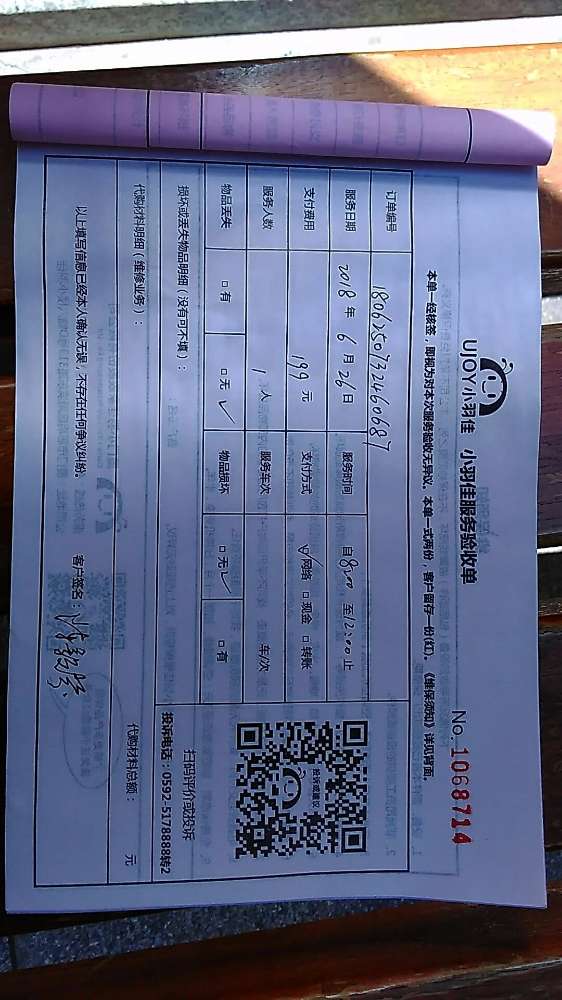 UJOY小羽佳 小羽佳服务验收单
No. 1068714
本单一经核签，即视为对本次服务验收无异议。本单一式两份，客户留存一份(红)。《维保须知》详见背面。
订单编号 180625073246068
服务日期 2018 年 6 月 26 日 服务时间 自 8:00 至 12:00 止
支付费用 199 元 支付方式 ☑网络 □现金 □转账
服务人数 1 人 服务车次 车/次
物品丢失 □有 □无✓ 物品损坏 □无✓ □有
投诉或建议
扫码评价或投诉
投诉电话：0592-5178888转2
损坏或丢失物品明细（没有可不填）：
代购材料明细（维修业务）： 代购材料总额： 元
以上填写信息已经本人确认无误，不存在任何争议纠纷。 客户签名：